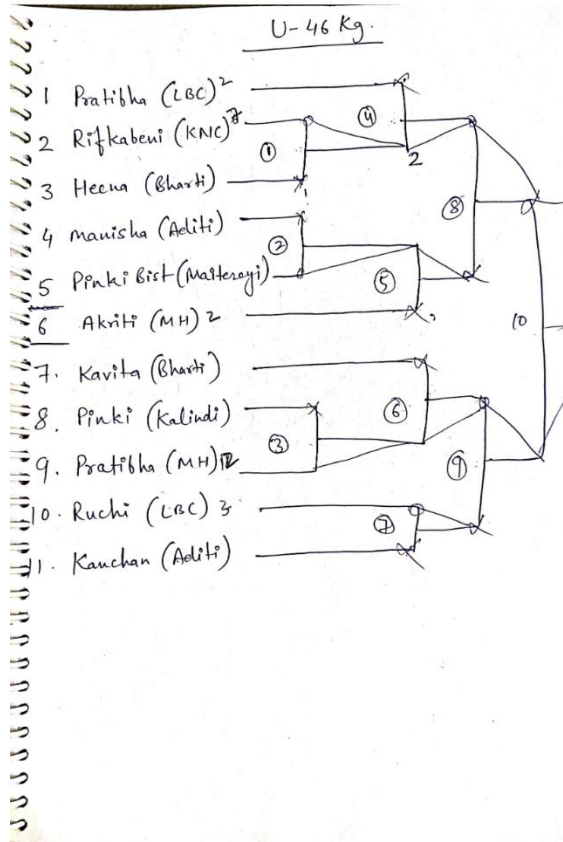 U-46 Kg.
1 Pratibha (LBC) 2
2 Rifkabeni (KNC) 7
3 Heena (Bharti)
4 Manisha (Aditi)
5 Pinki Bist (Maitereyi)
6 Akriti (MH) 2
7. Kavita (Bharti)
8. Pinki (Kalindi)
9. Pratibha (MH)
10. Ruchi (LBC) 3
11. Kanchan (Aditi)
4
1
2
8
2
5
10
6
3
9
7